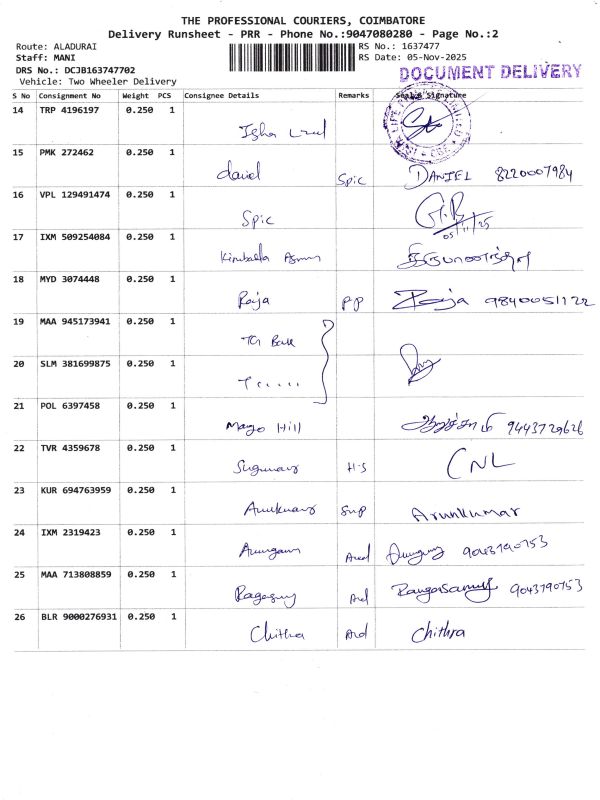 THE PROFESSIONAL COURIERS, COIMBATORE
Delivery Runsheet - PRR - Phone No.:9047080280 - Page No.:2
Route: ALADURAI RS No.: 1637477
Staff: MANI RS Date: 05-Nov-2025
DRS No.: DCJB163747702
Vehicle: Two Wheeler Delivery
DOCUMENT DELIVERY
S No Consignment No Weight PCS Consignee Details Remarks Seal & Signature
14 TRP 4196197 0.250 1
15 PMK 272462 0.250 1
David Spic DANIEL 8220007984
16 VPL 129491474 0.250 1
Spic 05/11/25
17 IXM 509254084 0.250 1
18 MYD 3074448 0.250 1
Roja PP Roja 9840051122
19 MAA 945173941 0.250 1
20 SLM 381699875 0.250 1
21 POL 6397458 0.250 1
Mango Hill 9443729626
22 TVR 4359678 0.250 1
Sugumar H-S CNL
23 KUR 694763959 0.250 1
Arulkumar Sup Arunkumar
24 IXM 2319423 0.250 1
9043790753
25 MAA 713808859 0.250 1
Rangasamy 9043790753
26 BLR 9000276931 0.250 1
Chithra Chithra